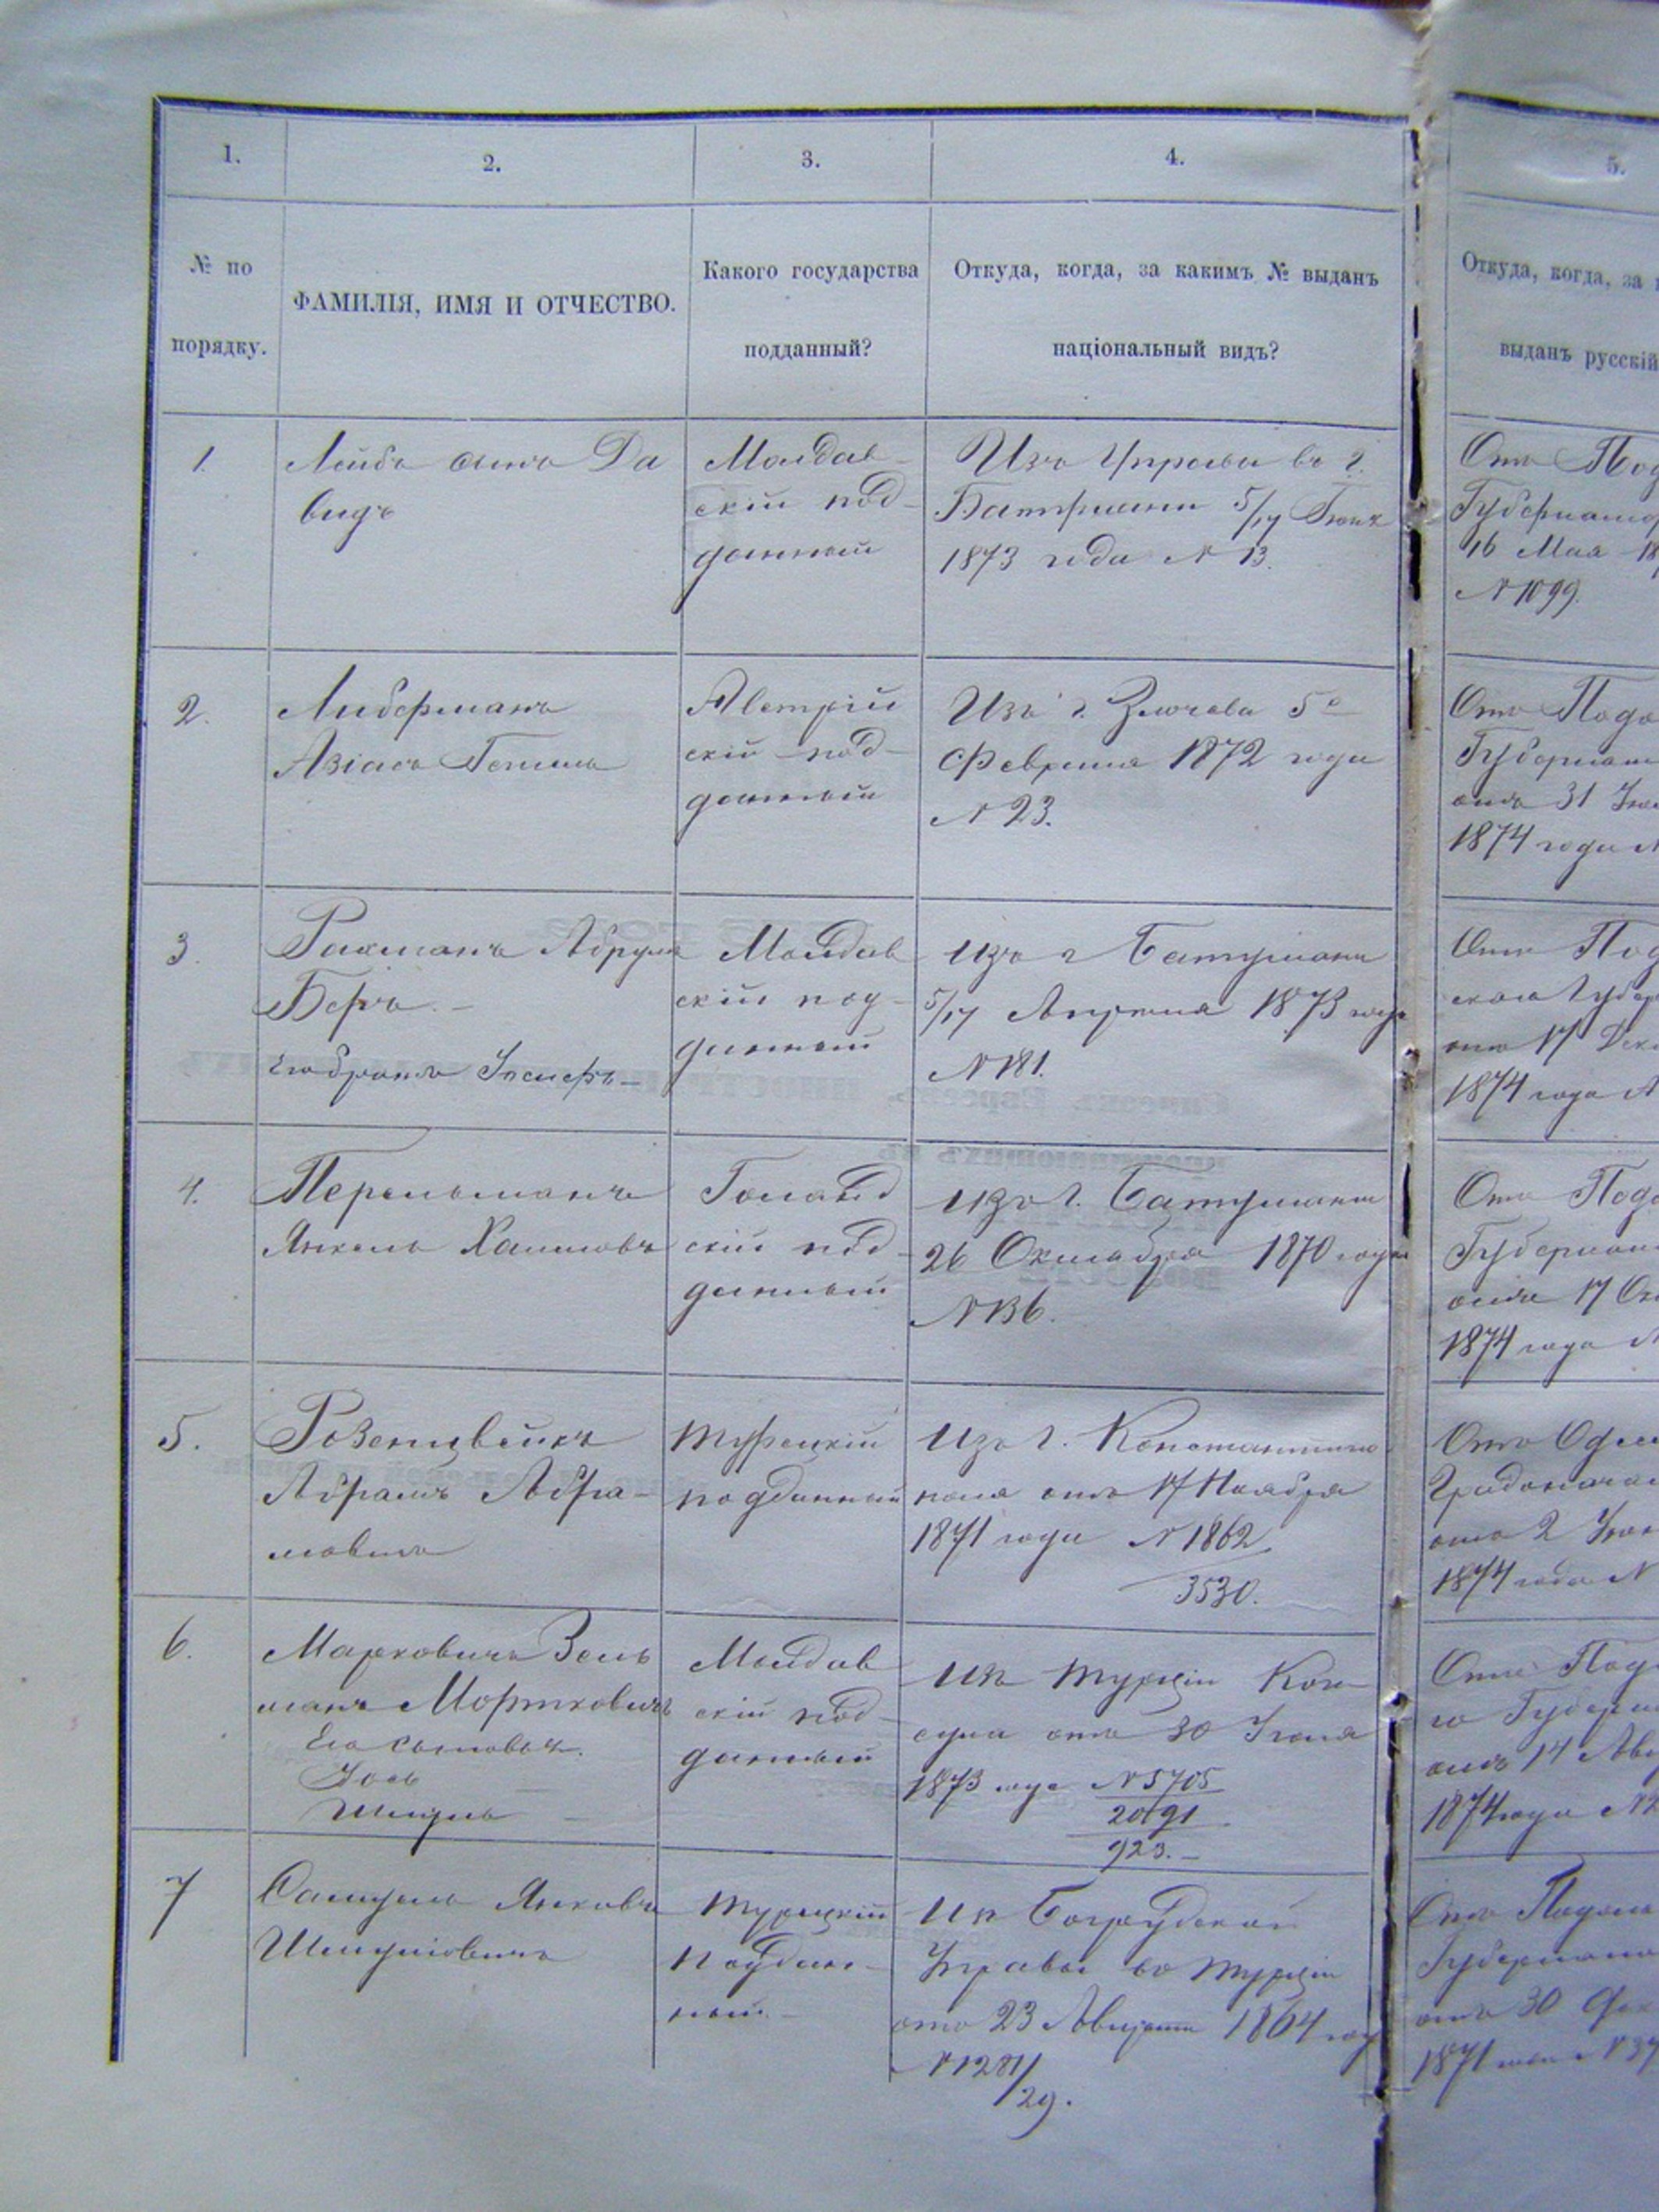 1.
2.
3.
4.
5.
№ по
порядку.
ФАМИЛІЯ, ИМЯ И ОТЧЕСТВО.
Какого государства
подданный?
Откуда, когда, за какимъ № выданъ
національный видъ?
Откуда, когда, за
выданъ русскій
1.
Лейба сынъ Да
видъ
Молдав
скій под-
данный
Изъ Управы въ г.
5/17
1873 года № 13.
Отъ Под
Губернатор
16 Мая 18
№ 1099.
2.
Либерманъ
Австрій
скій под-
данный
Изъ г. Злочева 5го
Февраля 1872 года
№ 23.
Отъ Подо
Губернат
отъ 31
1874 года №
3.
Рахманъ
Беръ. -
его братъ Іосифъ -
Молдав
скій под-
данный
Изъ г
5/17 Апреля 1873 года
№ 181.
Отъ Под
скаго Губер
отъ 17 Дек
1874 года №
4.
Перельманъ
Янкель Хаимовъ
Голанд
скій под-
данный
Изъ г.
26 Октября 1870 года
№ 136.
Отъ Подо
Губернат
отъ 17 Ок
1874 года №
5.
Розенцвейгъ
Абрамъ Абра-
мовичъ
Турецкій
подданный
Изъ г. Константино
поля отъ 17 Ноября
1871 года № 1862
3530.
Отъ Одес
Градоначал
отъ 2
1874 года №
6.
Марковичъ Зель
манъ Мортковичъ
Его сыновья.
Іось
Шмуль -
Молдав
скій под-
данный
Изъ Турціи Кон
сула отъ 30
1873 года № 5705
20191
923. -
Отъ Подо
го Губерн
отъ 14 Авг
1874 года №
7
Самуилъ Янковъ
Шмуловичъ
Турецкій
поддан-
ный -
Изъ
Управы въ Турціи
отъ 23 Августа 1864 года
№ 1281/29.
Отъ Подоль
Губернато
отъ 30
1871 года №